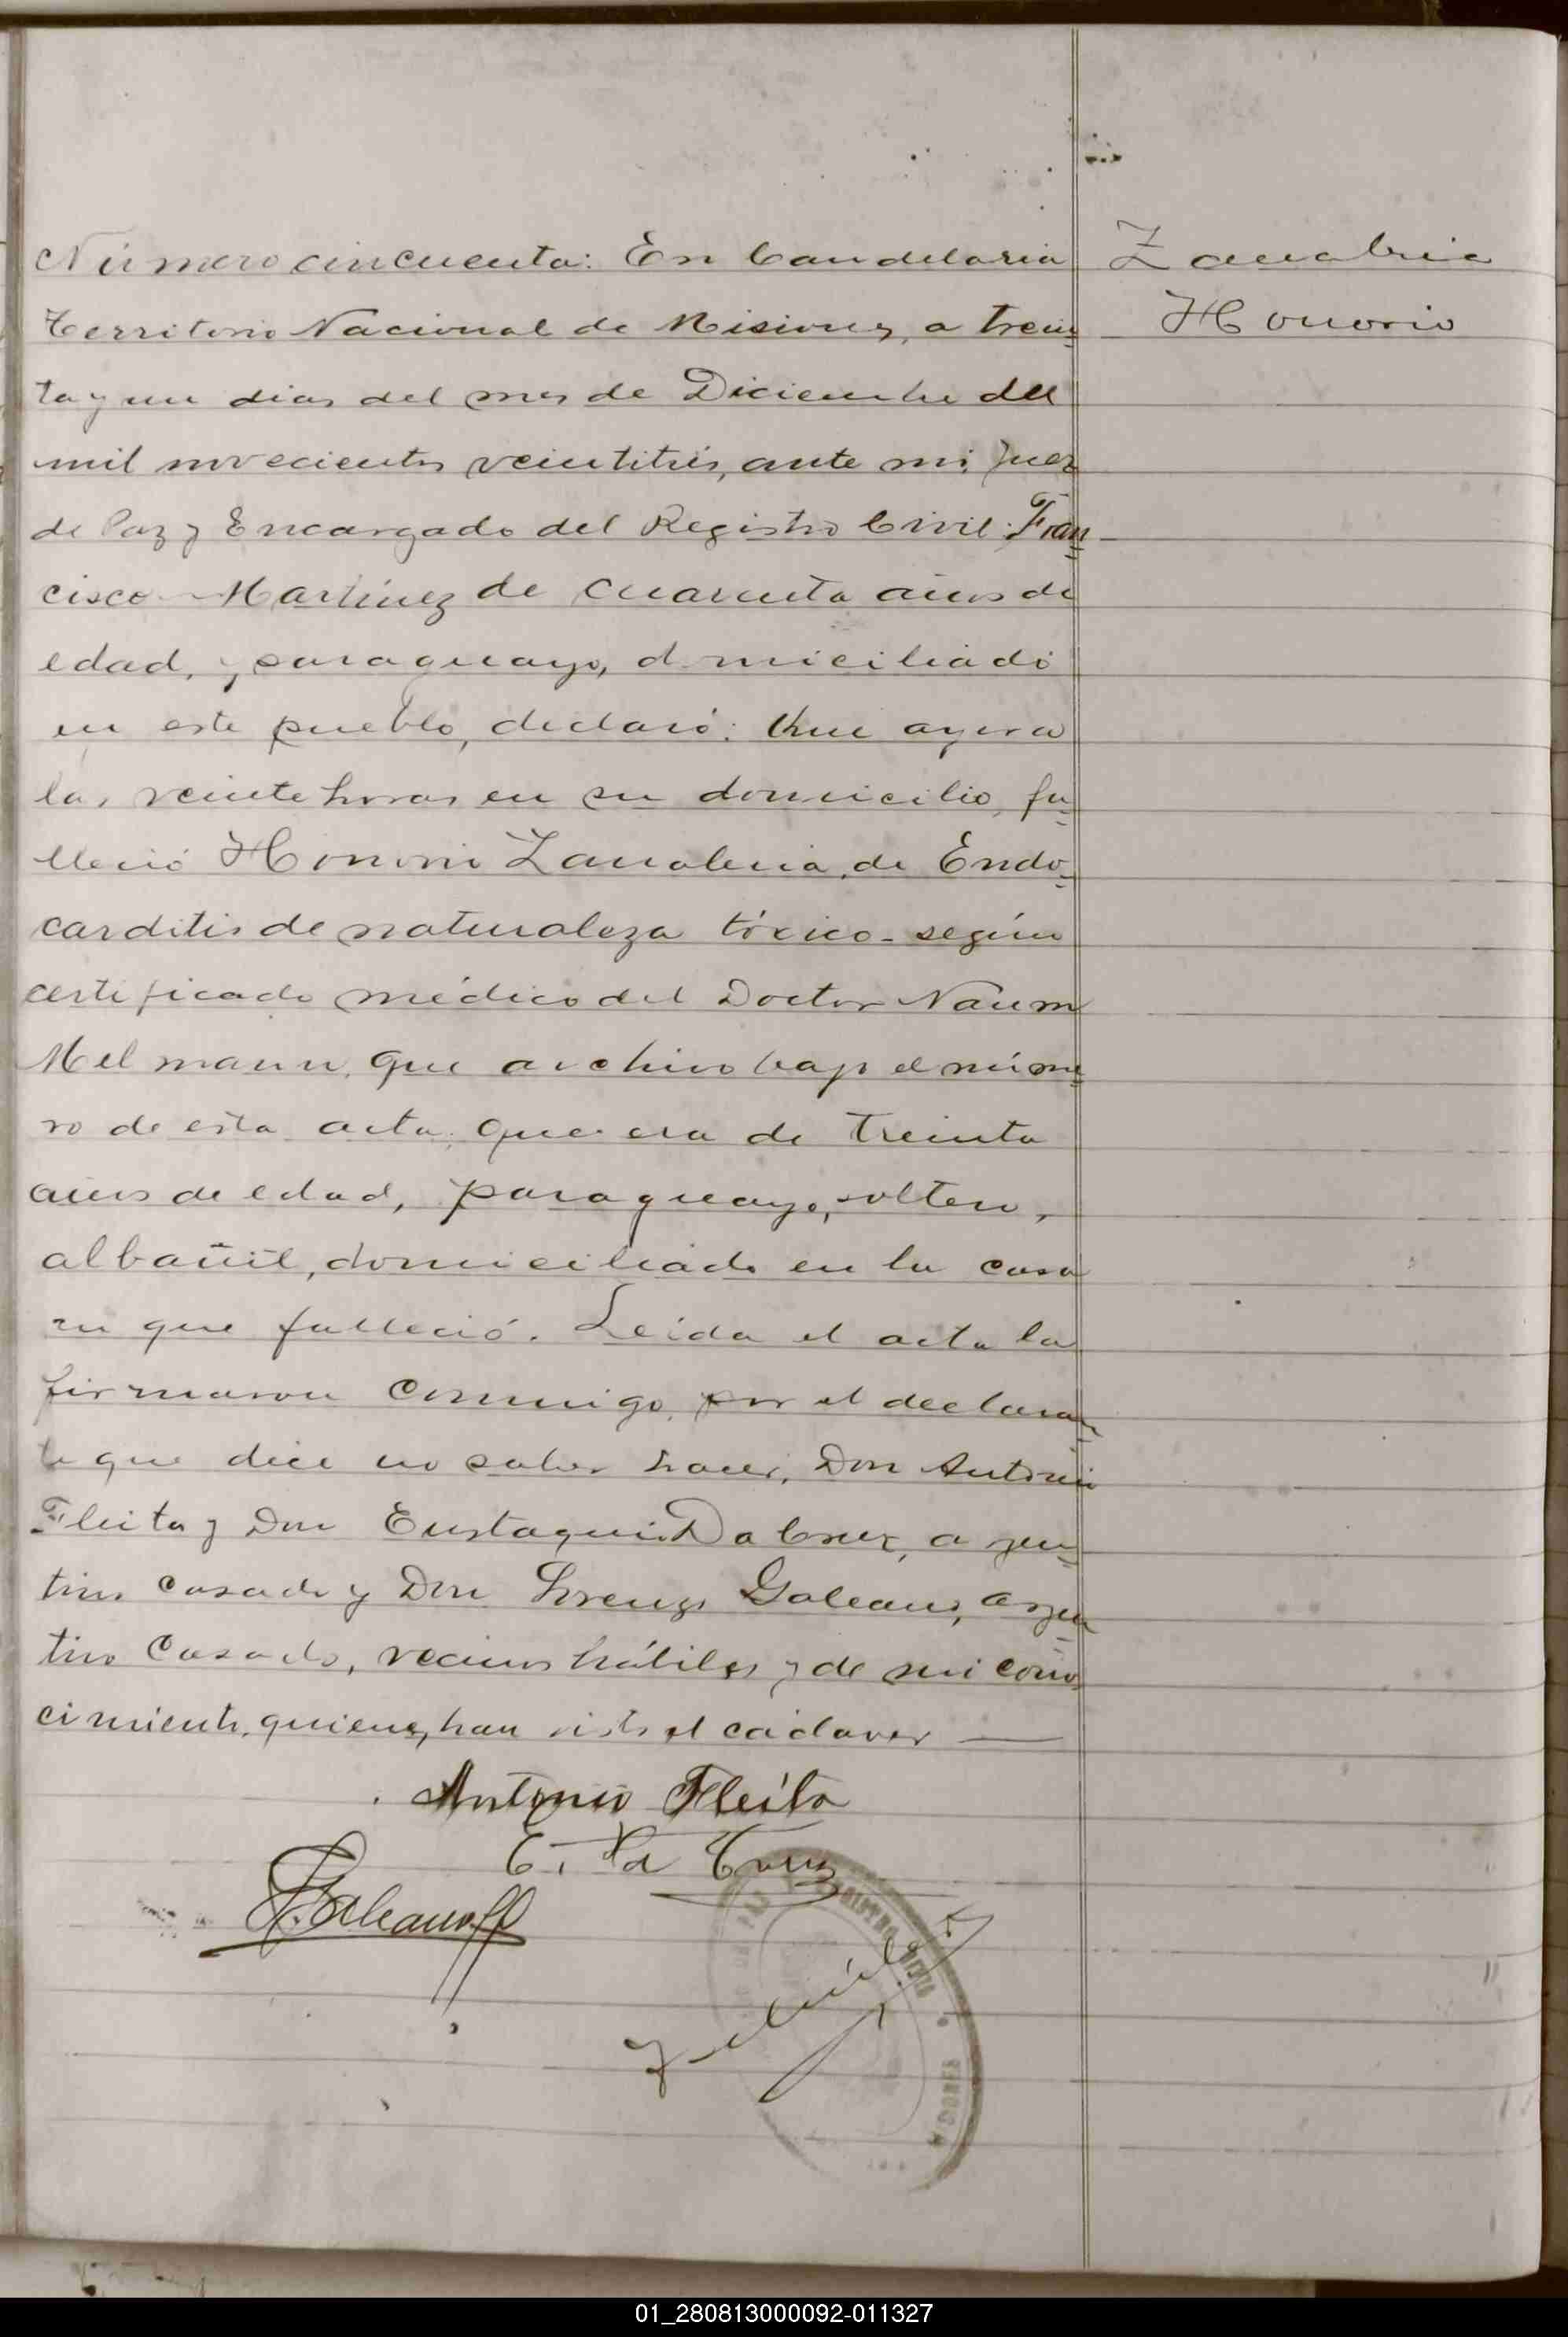 Número cincuenta: En Candelaria
Zanabria
Territorio Nacional de Misiones, a trein=
Honorio
ta y un dias del mes de Diciembre del
mil novecientos veintitrés, ante mi, Juez
de Paz y Encargado del Registro Civil: Fran=
cisco Martínez de cuarenta años de
edad, paraguayo, domiciliado
en este pueblo, declaró: Que ayer a
las veinte horas en su domicilio, fa=
lleció Honorio Zanabria, de Endo=
carditis de naturaleza tóxico- según
certificado médico del Doctor Naum
Melmann, que archivo bajo el núme=
ro de esta acta; que era de treinta
años de edad, paraguayo, soltero,
albañil, domiciliado en la casa
en que falleció. Leida el acta la
firmaron conmigo, por el declaran=
te que dice no saber hacer, Don Antonio
Fleita y Don Eustaquio Da Cruz, argen=
tino casado y Don Lorenzo Galeano, argen=
tino casado, vecinos hábiles y de mi cono=
cimiento, quienes han visto el cadaver —
Antonio Fleita
E. Da Cruz
L. Galeano
REGISTRO CIVIL
01_280813000092-011327